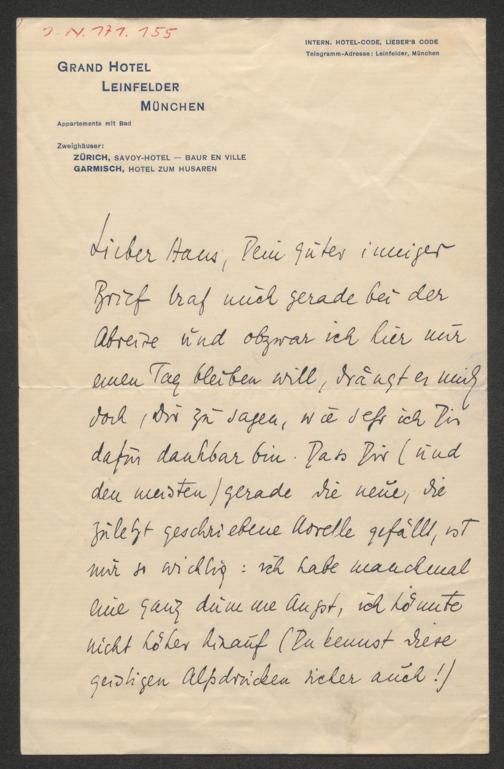 J. N. 171.155
INTERN. HOTEL-CODE, LIEBER'S CODE
Telegramm-Adresse: Leinfelder, München
GRAND HOTEL
LEINFELDER
MÜNCHEN
Appartements mit Bad
Zweighäuser:
ZÜRICH, SAVOY-HOTEL — BAUR EN VILLE
GARMISCH, HOTEL ZUM HUSAREN
Lieber Hans, Dein guter inniger
Brief traf mich gerade bei der
Abreise und obzwar ich hier nur
einen Tag bleiben will, drängt es mich
doch, Dir zu sagen, wie sehr ich Dir
dafür dankbar bin. Dass Dir (und
den meisten) gerade die neue, die
zuletzt geschriebene Novelle gefällt, ist
mir so wichtig: ich habe manchmal
eine ganz dumme Angst, ich könnte
nicht höher hinauf (Du kennst diese
geistigen Alpdrücken sicher auch!)